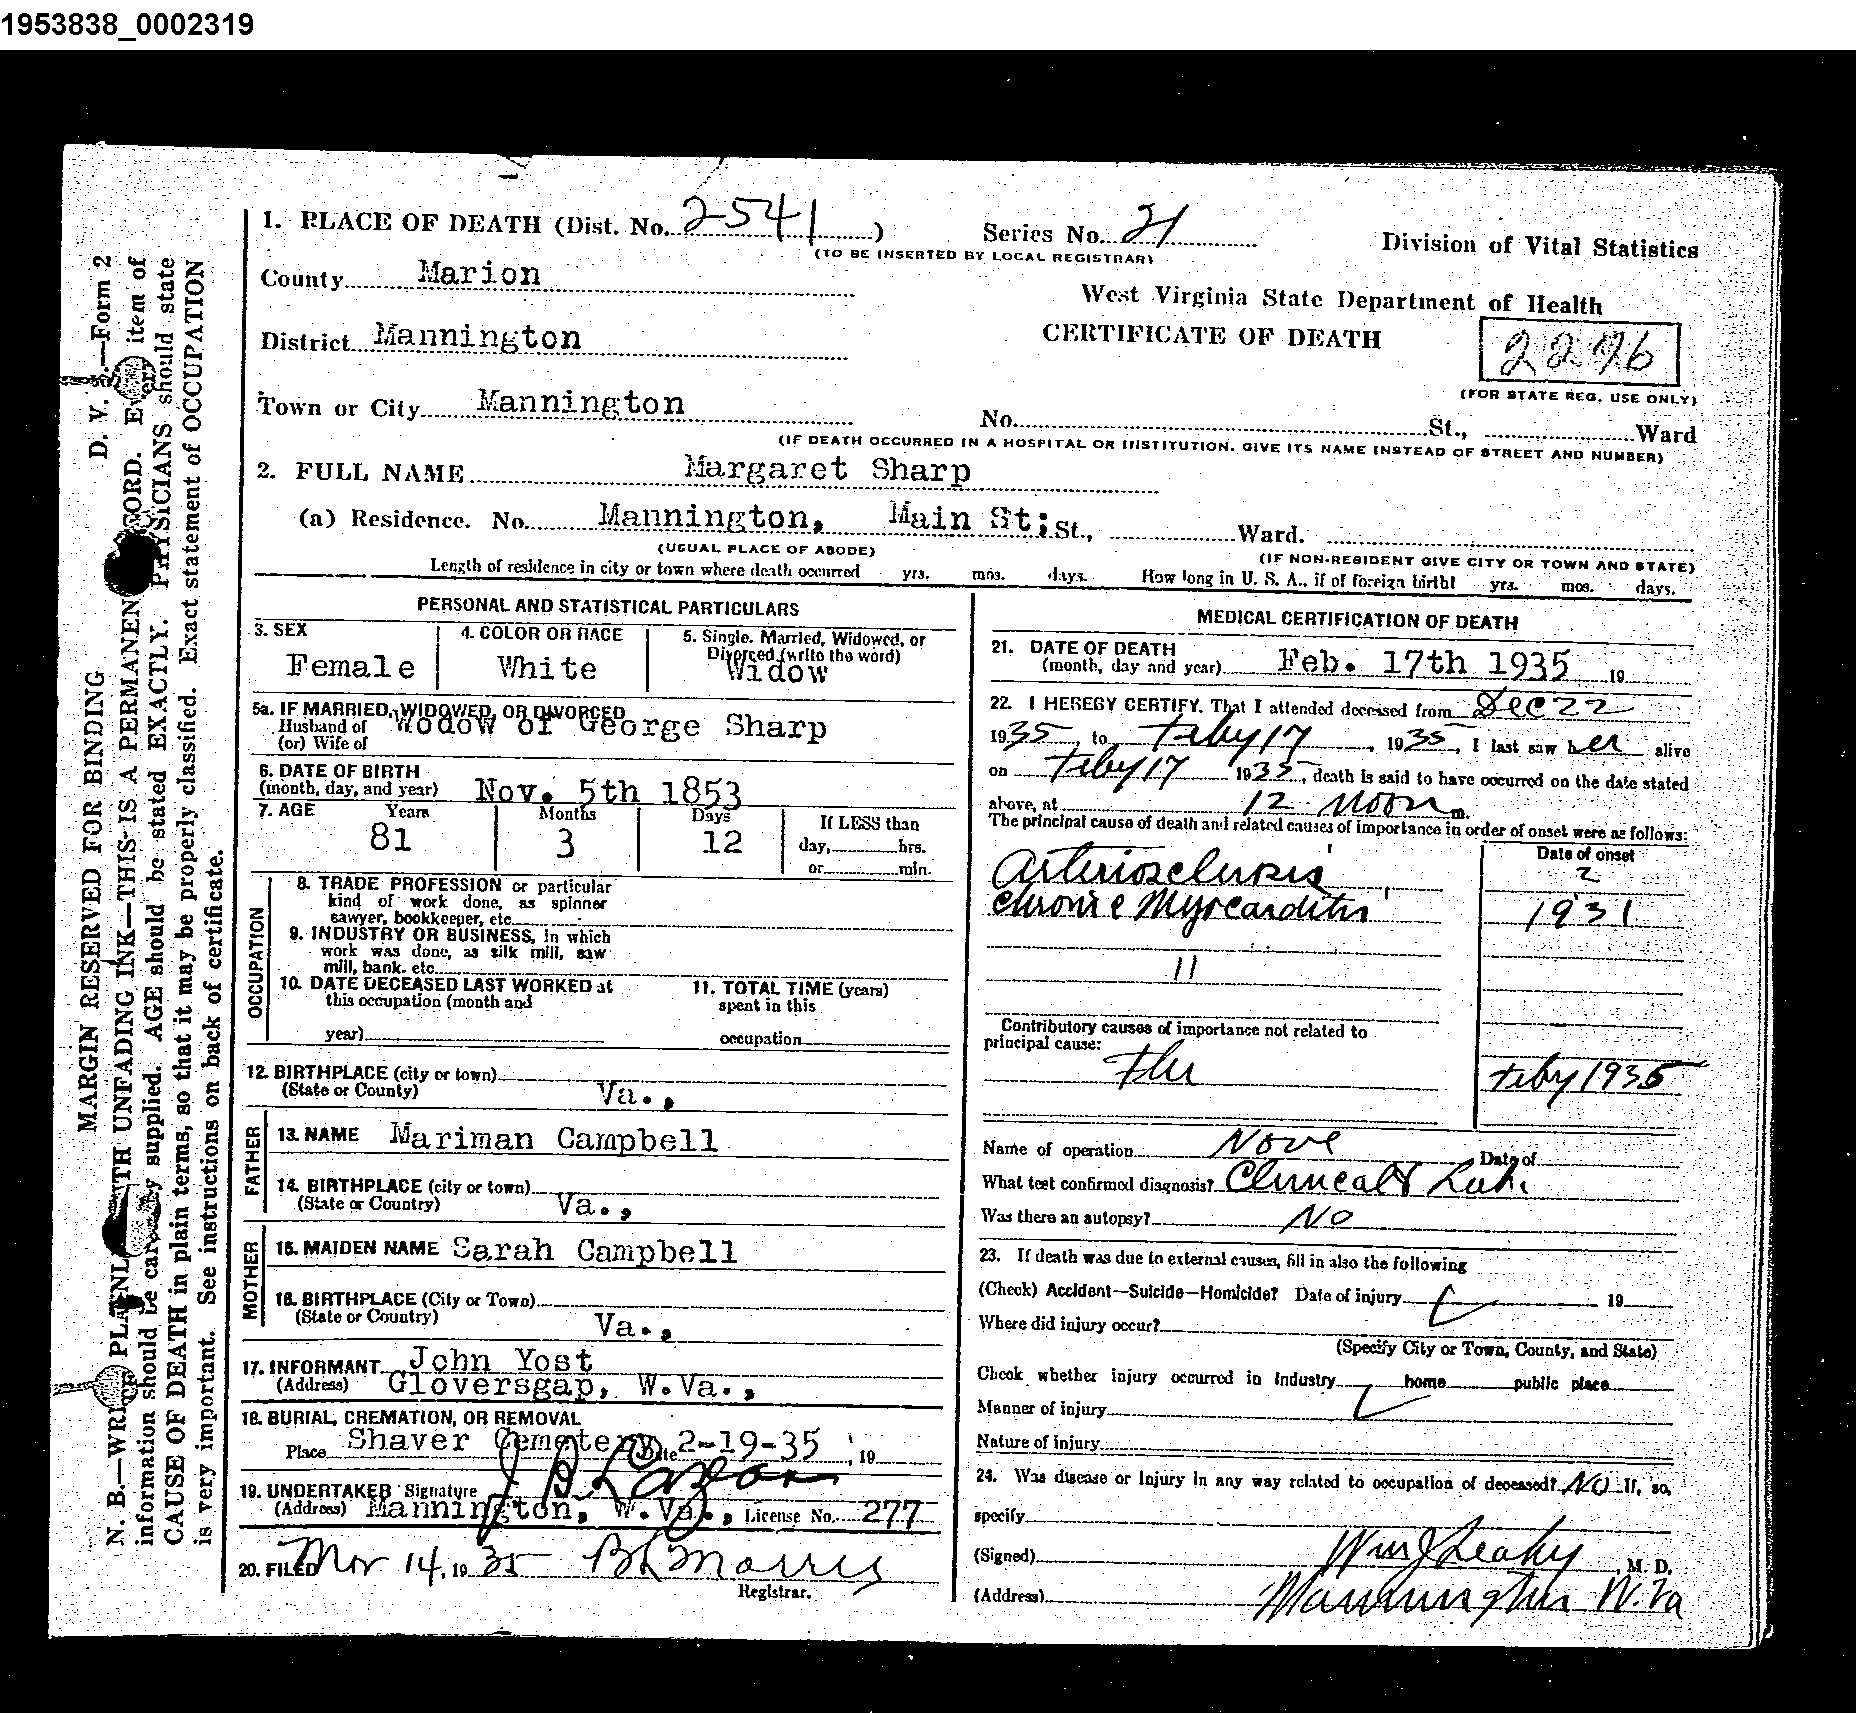 1953838_0002319
1. PLACE OF DEATH (Dist. No. 2541) Series No. 21 Division of Vital Statistics
(TO BE INSERTED BY LOCAL REGISTRAR)
County Marion
West Virginia State Department of Health
District Mannington
CERTIFICATE OF DEATH 2296
(FOR STATE REG. USE ONLY)
Town or City Mannington
No. St., Ward
(IF DEATH OCCURRED IN A HOSPITAL OR INSTITUTION, GIVE ITS NAME INSTEAD OF STREET AND NUMBER)
2. FULL NAME Margaret Sharp
(a) Residence. No. Mannington, Main St; St., Ward.
(USUAL PLACE OF ABODE) (IF NON-RESIDENT GIVE CITY OR TOWN AND STATE)
Length of residence in city or town where death occurred yrs. mos. days. How long in U. S. A., if of foreign birth? yrs. mos. days.
PERSONAL AND STATISTICAL PARTICULARS
3. SEX 4. COLOR OR RACE 5. Single, Married, Widowed, or
Divorced (write the word)
Female White Widow
5a. IF MARRIED, WIDOWED, OR DIVORCED
Husband of Wodow of George Sharp
(or) Wife of
6. DATE OF BIRTH
(month, day, and year) Nov. 5th 1853
7. AGE Years Months Days If LESS than
81 3 12 day, hrs.
or min.
OCCUPATION
8. TRADE PROFESSION or particular
kind of work done, as spinner
sawyer, bookkeeper, etc
9. INDUSTRY OR BUSINESS, in which
work was done, as silk mill, saw
mill, bank. etc
10. DATE DECEASED LAST WORKED at 11. TOTAL TIME (years)
this occupation (month and spent in this
year) occupation
12. BIRTHPLACE (city or town)
(State or County) Va.,
FATHER
13. NAME Mariman Campbell
14. BIRTHPLACE (city or town)
(State or Country) Va.,
MOTHER
15. MAIDEN NAME Sarah Campbell
16. BIRTHPLACE (City or Town)
(State or Country) Va.,
17. INFORMANT John Yost
(Address) Gloversgap, W.Va.,
18. BURIAL, CREMATION, OR REMOVAL
Place Shaver Cemetery Date 2-19-35, 19
19. UNDERTAKER Signature
(Address) Mannington, W.Va., License No. 277
20. FILED Mar 14, 19 35 Morris
Registrar.
MEDICAL CERTIFICATION OF DEATH
21. DATE OF DEATH
(month, day and year) Feb. 17th 1935 19
22. I HEREBY CERTIFY. That I attended deceased from Dec 22
1935, to Feby 17, 1935, I last saw her alive
on Feby 17 1935, death is said to have occurred on the date stated
above, at 12 Noon m.
The principal cause of death and related causes of importance in order of onset were as follows:
Date of onset
Arteriosclerosis ?
Chronic Myocarditis 1931
11
Contributory causes of importance not related to
principal cause:
Flu Feby 1935
Name of operation None Date of
What test confirmed diagnosis? Clinical & Lab.
Was there an autopsy? No
23. If death was due to external causes, fill in also the following
(Check) Accident—Suicide—Homicide? Date of injury 19
Where did injury occur?
(Specify City or Town, County, and State)
Check whether injury occurred in Industry home public place
Manner of injury
Nature of injury
24. Was disease or Injury in any way related to occupation of deceased? NO If, so,
specify
(Signed) Wm J Leahy M. D.
(Address) Mannington W. Va
D. V. S.—Form 2
MARGIN RESERVED FOR BINDING
N. B.—WRITE PLAINLY WITH UNFADING INK—THIS IS A PERMANENT RECORD. Every item of
information should be carefully supplied. AGE should be stated EXACTLY. PHYSICIANS should state
CAUSE OF DEATH in plain terms, so that it may be properly classified. Exact statement of OCCUPATION
is very important. See instructions on back of certificate.